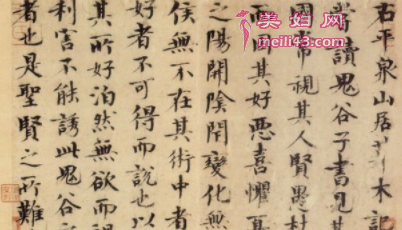 右平泉山居草木記
嘗讀鬼谷子書見其
國常視其人賢愚材
而因其好惡喜懼憂
之陽開陰閉變化無
侯無不在其術中者
好者不可得而說也以
其所好泊然無欲而禍
利害不能誘此鬼谷之
者也是聖賢之所難
美妇网
meili43.com